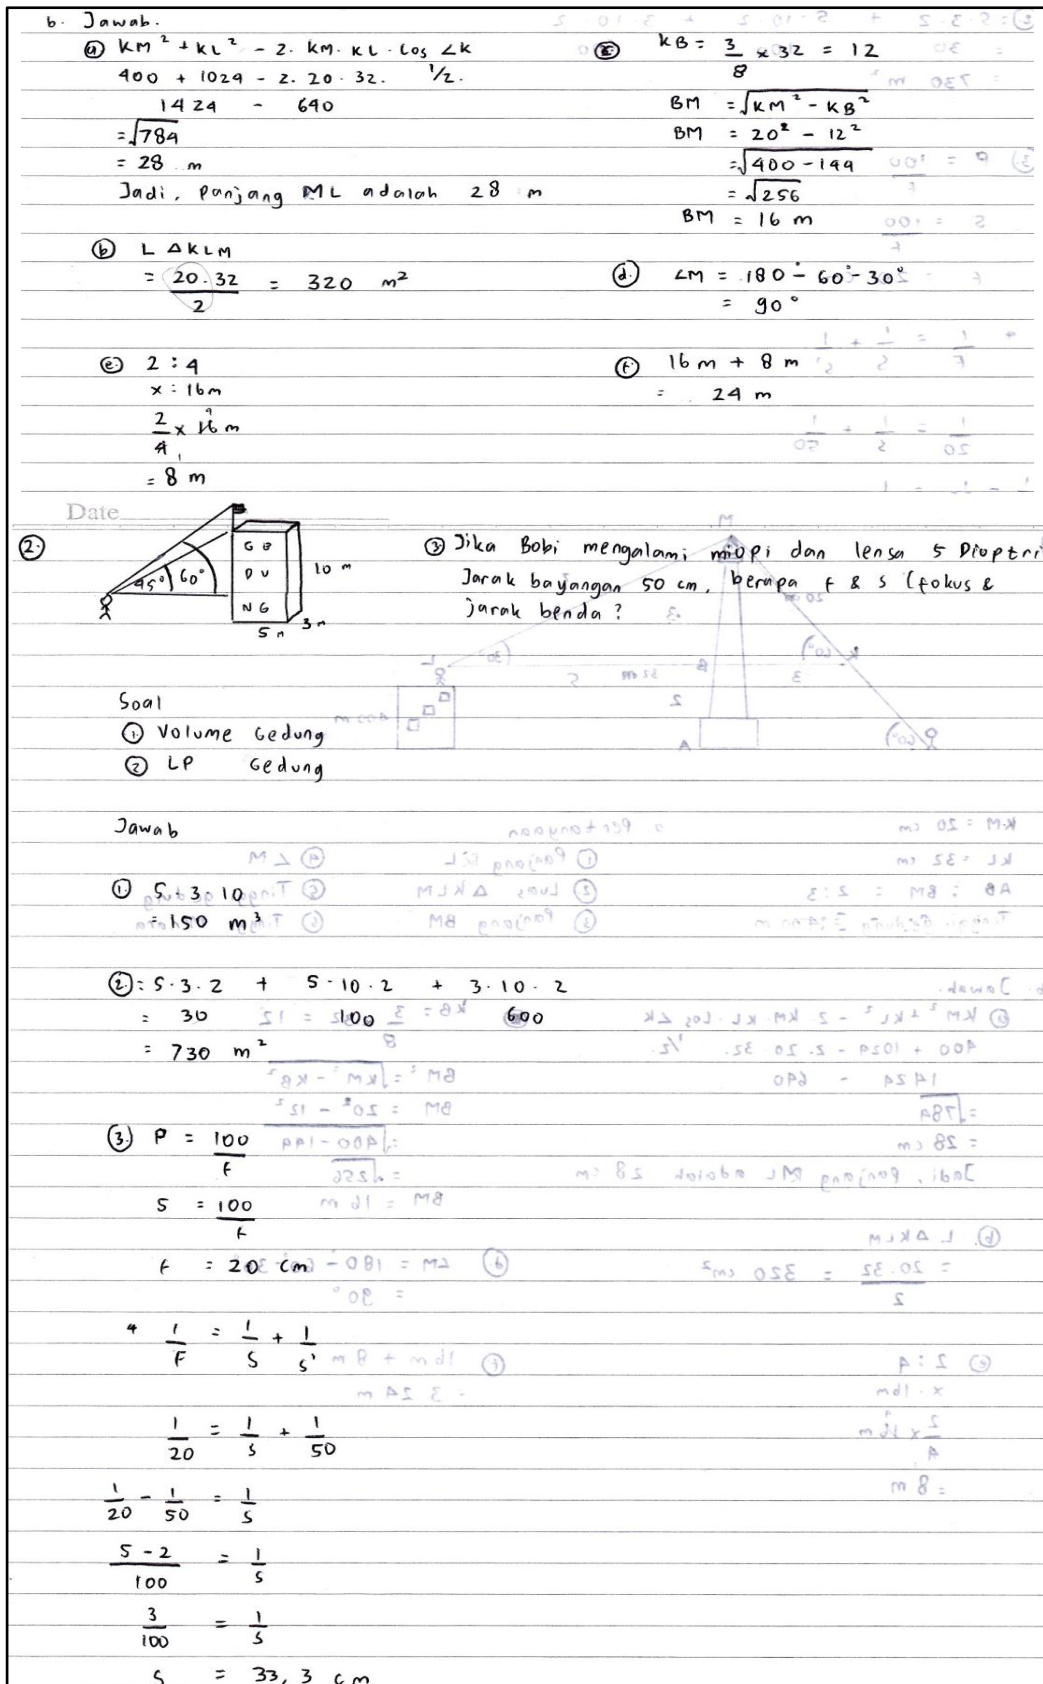 b. Jawab.
(a) KM² + KL² - 2. KM. KL. Cos ∠K
400 + 1024 - 2. 20. 32. 1/2.
1424 - 640
= √784
= 28 m
Jadi, Panjang ML adalah 28 m
KB = 3/8 x 32 = 12
BM = √KM² - KB²
BM = 20² - 12²
= √400 - 144
= √256
BM = 16 m
(b) L △KLM
= 20.32/2 = 320 m²
(d.) ∠M = 180° - 60° - 30°
= 90°
(e.) 2 : 4
x : 16m
2/4 x 16 m
= 8 m
(f.) 16 m + 8 m
= 24 m
Date
(2.)
45° 60°
GE
DU
NG
10 m
5 m 3 m
(3) Jika Bobi mengalami miopi dan lensa 5 Dioptri
Jarak bayangan 50 cm, berapa f & s (fokus &
jarak benda?
Soal
(1.) Volume Gedung
(2) LP Gedung
Jawab
(1.) 5.3.10
= 150 m³
(2.) = 5.3.2 + 5.10.2 + 3.10.2
= 30 100 600
= 730 m²
(3.) P = 100/f
5 = 100/f
f = 20 cm
1/F = 1/S + 1/S'
1/20 = 1/S + 1/50
1/20 - 1/50 = 1/S
5-2/100 = 1/S
3/100 = 1/S
S = 33,3 cm